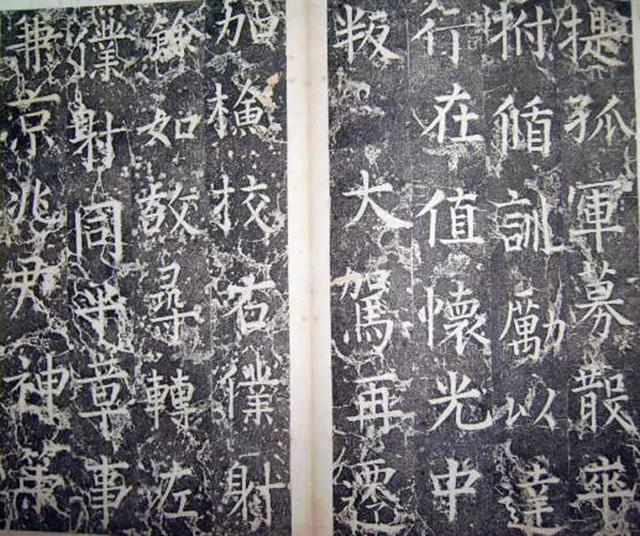 提孤軍募散卒
拊循訓勵以達
行在值懷光中
叛大駕再遷
加檢校右僕射
餘如故尋轉左
僕射同平章事
兼京兆尹神策